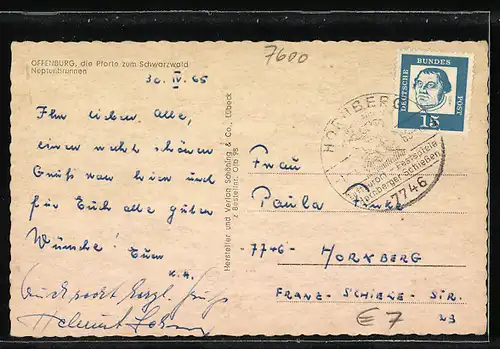 OFFENBURG, die Pforte zum Schwarzwald
Neptunbrunnen
30. IV. 65
7600
Ihr lieben alle,
einen recht schönen
Gruß von hier und
für Euch alle guten
Wünsche! Eure
Hersteller und Verlag Schöning & Co., Lübeck
Bestellnr. Ofb 98
DEUTSCHE BUNDESPOST
15
HORNBERG
Festspiele
Hornberger Schießen
7746
Frau
Paula
7746
HORNBERG
FRANZ-SCHIELE-STR.
29
€ 7
Helmut